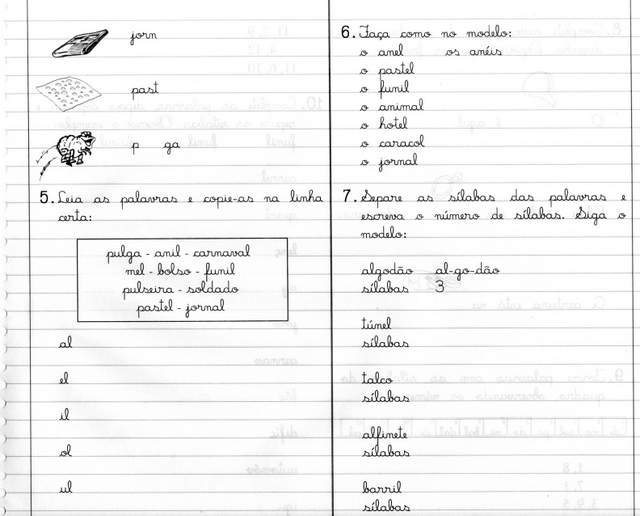 jorn
past
p ga
5. Leia as palavras e copie-as na linha
certa:
pulga - anil - carnaval
mel - bolso - funil
pulseira - soldado
pastel - jornal
al
el
il
ol
ul
6. Faça como no modelo:
o anel os anéis
o pastel
o funil
o animal
o hotel
o caracol
o jornal
7. Separe as sílabas das palavras e
escreva o número de sílabas. Siga o
modelo:
algodão al-go-dão
sílabas 3
túnel
sílabas
talco
sílabas
alfinete
sílabas
barril
sílabas